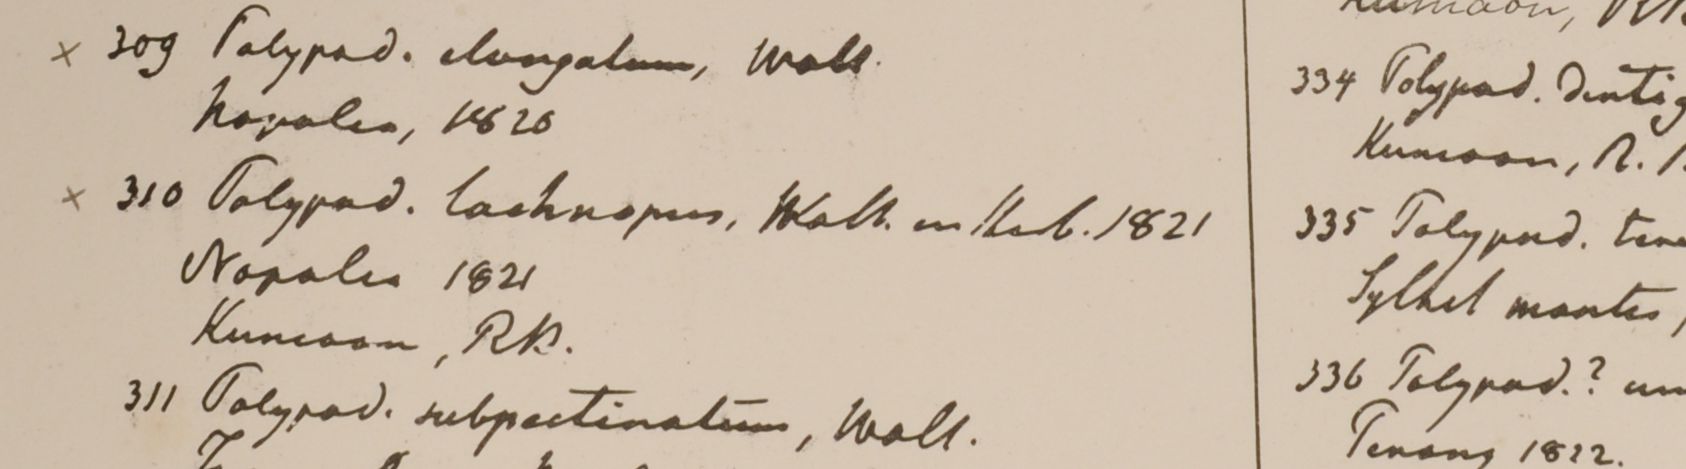 × 309 Polypod. elongatum, Wall.
Napalia, 1820
× 310 Polypod. lachnopus, Wall. in Herb. 1821
Napalia 1821
Kumaon, RB.
311 Polypod. subpectinatum, Wall.
Kumaon,
334 Polypod. dentig
Kumaon, R.
335 Polypod. ten
Sylhet montes
336 Polypod.? um
Penang 1822.